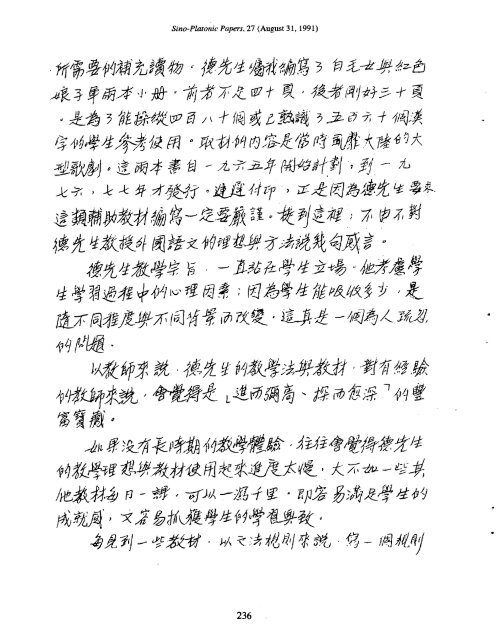 Sino-Platonic Papers, 27 (August 31, 1991)
所需要的補充讀物。德先生囑我編寫了白毛女與紅色
娘子軍兩本小冊。前者不足四十頁,後者剛好三十頁
。是為了能操縱四百八十個或已熟識了五百六十個漢
字的學生參考使用。取材的內容是當時風靡大陸的大
型歌劇。這兩本書自一九六五年開始計劃,到一九
七六,七七年才發行。遲遲付印,正是因為德先生要求
這類輔助教材編寫一定要嚴謹。提到這裡,不由不對
德先生教授外國語文的理想與方法說幾句感言。
德先生教學宗旨,一直站在學生立場。他考慮學
生學習過程中的心理因素;因為學生能吸收多少,是
隨不同程度與不同背景而改變。這真是一個為人疏忽
的問題。
以教師來說,德先生的教學法與教材,對有經驗
的教師來說,會覺得是「進而彌高、探而愈深」的豐
富寶藏。
如果沒有長時期的教學體驗,往往會覺得德先生
的教學理想與教材使用起來進度太慢,大不如一些其
他教材每日一課,可以一瀉千里。即容易滿足學生的
成就感,又容易抓獲學生的學習興致。
每見到一些教材,以文法規則來說,寫一個規則
236